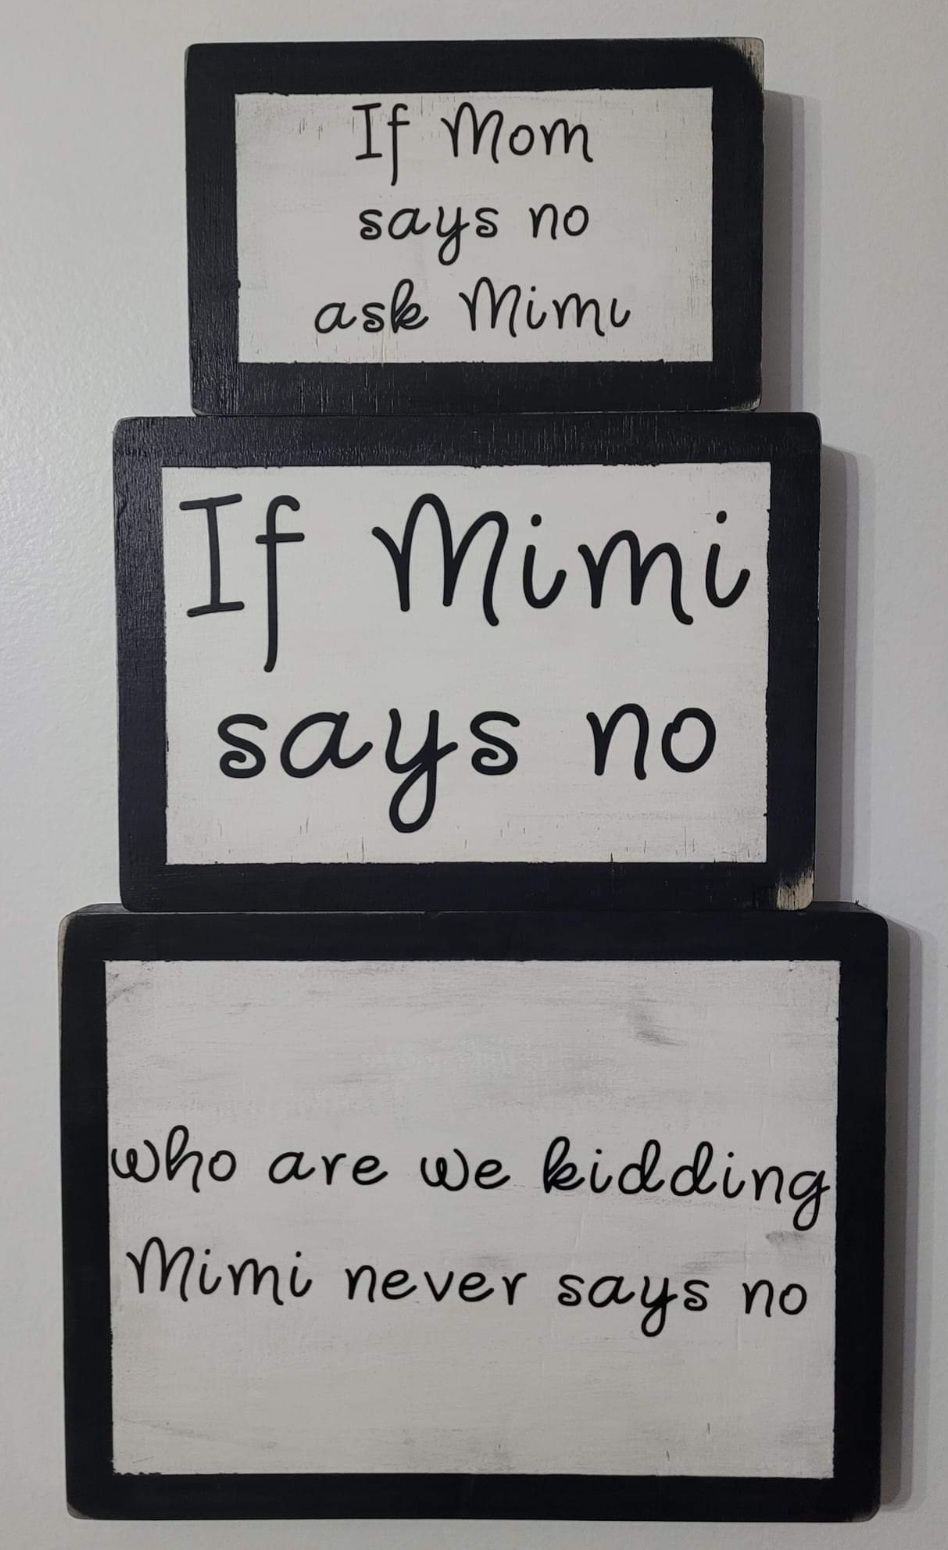 If Mom
says no
ask Mimi
If Mimi
says no
who are we kidding
Mimi never says no